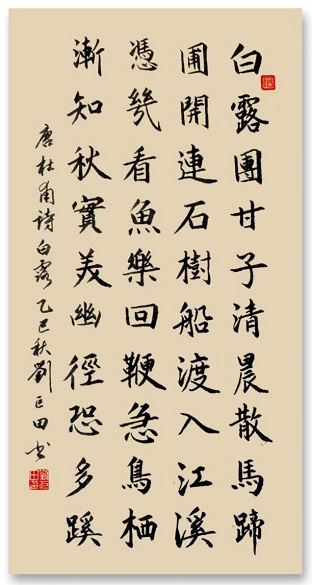 白露團甘子清晨散馬蹄
圃開連石樹船渡入江溪
憑幾看魚樂回鞭急鳥栖
漸知秋實美幽徑恐多蹊
唐杜甫詩白露乙巳秋劉巨田书